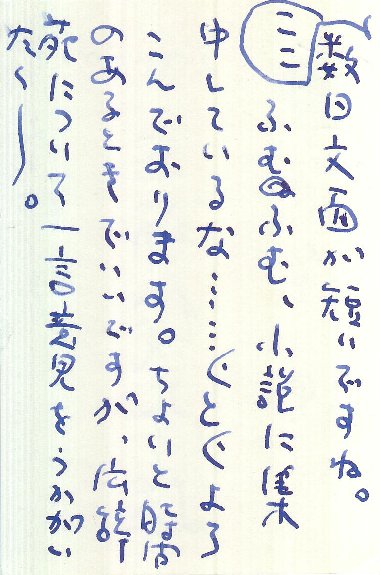 ここ
数日文面が短いですね。
ふむふむ、小説に集
中しているな……ぐとぐよろ
こんでおります。ちょいと時間
のあるときでいいですが、広辞
苑について一言意見をうかがい
たく―。